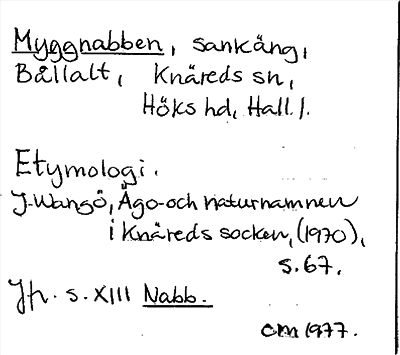 Myggnabben, sankäng,
Bållalt, Knäreds sn,
Höks hd, Hall.l.
Etymologi.
J. Wangö, Ägo- och naturnamnen
i Knäreds socken, (1970),
s. 67.
Jfr. s. XIII Nabb.
CM 1977.